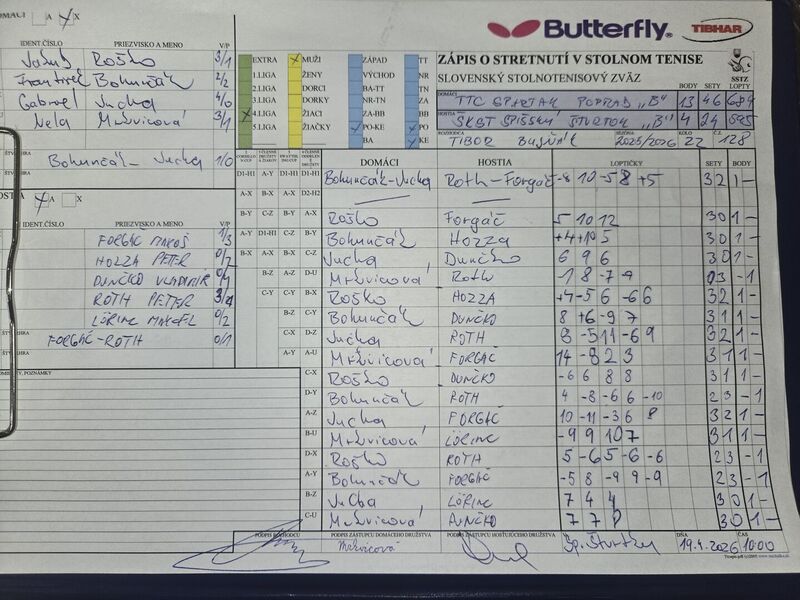 DOMÁCI A X
Butterfly TIBHAR
IDENT.ČÍSLO PRIEZVISKO A MENO V/P
Roško 3/1
František Bohunčák 2/2
Gabriel Jucha 4/0
Nela Mrševicová 3/1
Bohunčák - Jucha 1/0
EXTRA MUŽI ZÁPAD TT
1.LIGA ŽENY VÝCHOD NR
2.LIGA DORCI BA-TT TN
3.LIGA DORKY NR-TN ZA
4.LIGA ŽIACI ZA-BB BB
5.LIGA ŽIAČKY PO-KE PO
BA KE
ZÁPIS O STRETNUTÍ V STOLNOM TENISE
SLOVENSKÝ STOLNOTENISOVÝ ZVÄZ
SSTZ
BODY SETY LOPTY
DOMÁCI TTC SPARTAK POPRAD "B" 13 46 684
HOSTIA SKST SPIŠSKÝ ŠTVRTOK "B" 4 24
ROZHODCA TIBOR SEZÓNA 2025/2026 KOLO 22 Č. 128
DOMÁCI HOSTIA LOPTIČKY SETY BODY
D1-H1 A-Y D1-H1 D1-H1 Bohunčák-Jucha Roth-Forgáč -8 10 -5 8 +5 3 2 1 -
A-X B-X A-X D2-H2
B-Y C-Z B-Y A-X Roško Forgáč 5 10 12 3 0 1 -
A-Y D1-H1 C-Z B-Y Bohunčák Hozza +4 +10 5 3 0 1 -
B-X A-X B-X C-Z Jucha Dunčko 6 9 6 3 0 1 -
B-Z A-Z D-U Mrševicová Roth -1 8 -7 -9 - 1
C-Y C-Y B-X Roško HOZZA +4 -5 6 -6 6 3 2 1 -
B-Z C-Y Bohunčák DUNČKO 8 +6 -9 7 3 1 1 -
C-X D-Z Jucha ROTH 8 -5 11 -6 9 3 2 1 -
A-Y A-U Mrševicová FORGÁČ 14 -8 2 3 3 1 1 -
C-X Roško DUNČKO -6 6 8 8 3 1 1 -
D-Y Bohunčák ROTH 4 -8 -6 6 -10 2 3 - 1
A-Z Jucha FORGÁČ 10 -11 -3 6 8 3 2 1 -
B-U Mrševicová LÖRINC -9 9 10 7 3 1 1 -
D-X Roško ROTH 5 -6 5 -6 -6 2 3 - 1
A-Y Bohunčák FORGÁČ -5 8 -9 9 -9 2 3 - 1
B-Z Jucha LÖRINC 7 4 4 3 0 1 -
C-U Mrševicová DUNČKO 7 7 8 3 0 1 -
IDENT.ČÍSLO PRIEZVISKO A MENO V/P
FORGÁČ 1/3
HOZZA PETER
DUNČKO VLADIMÍR
ROTH PETER
LÖRINC 0/2
FORGÁČ-ROTH 0/1
POZNÁMKY
PODPIS ROZHODCU PODPIS ZÁSTUPCU DOMÁCEHO DRUŽSTVA PODPIS ZÁSTUPCU HOSŤUJÚCEHO DRUŽSTVA DŇA ČAS
Mrševicová Sp. Štvrtku 19.4.2026 10:00